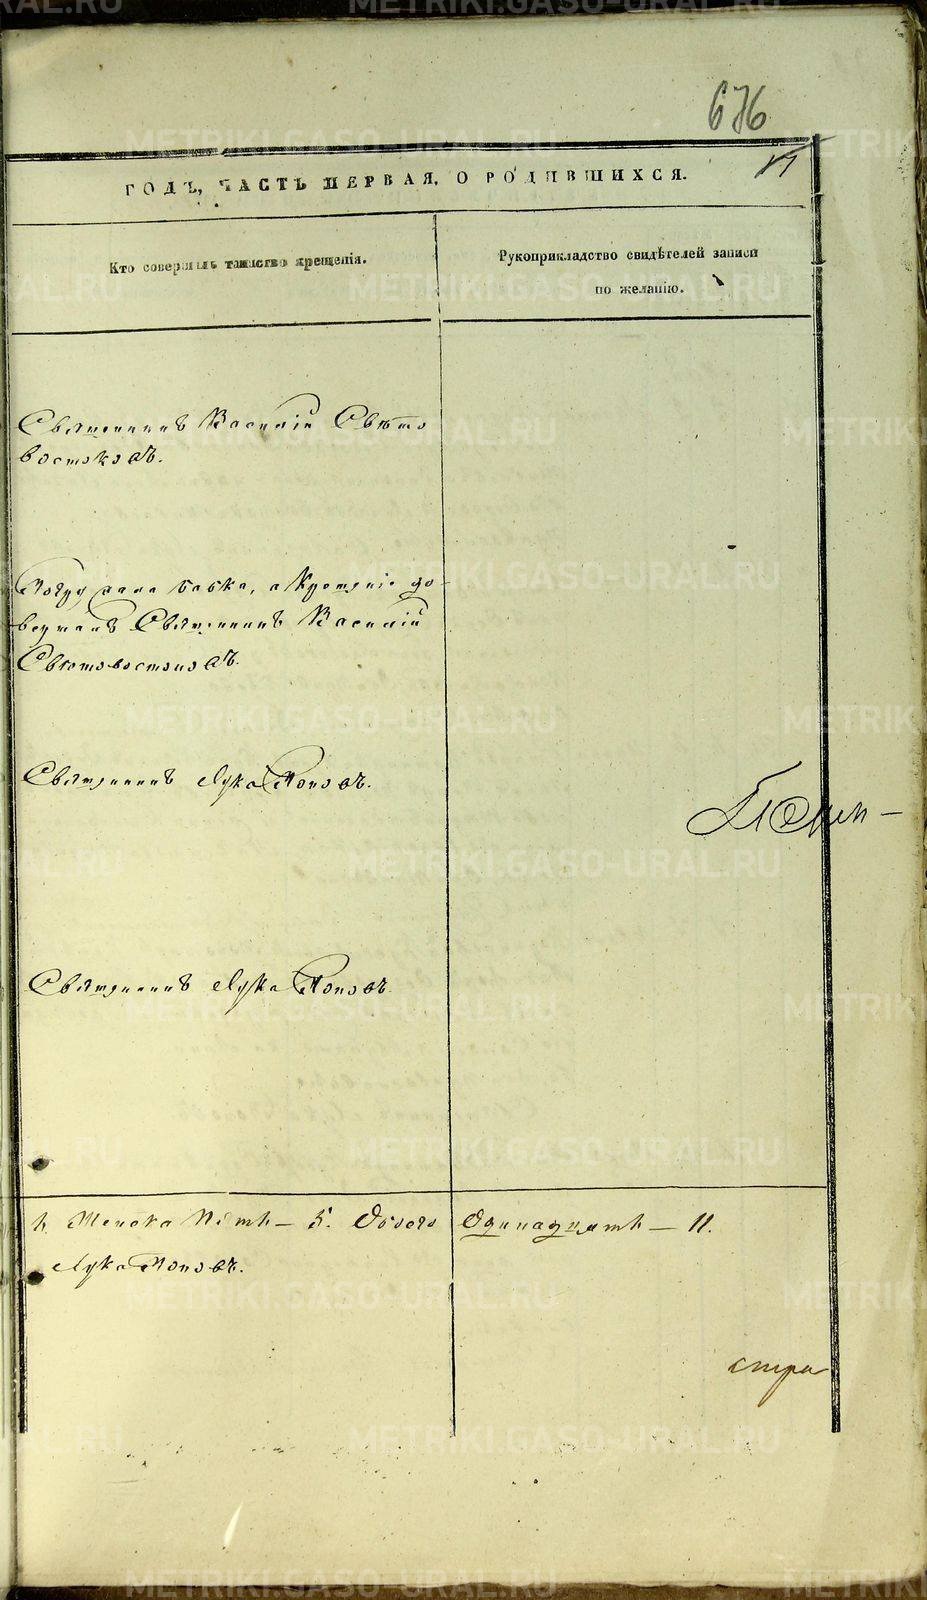 676
11
ГОДЪ, ЧАСТЬ ПЕРВАЯ, О РОДИВШИХСЯ.
Кто совершалъ таинство крещенія.
Рукоприкладство свидѣтелей записи
по желанію.
Священникъ Василій Свѣто
востоковъ.
Погружала бабка, а крещеніе до-
вершалъ Священникъ Василій
Свѣтовостоковъ.
Священникъ Лука Поповъ.
Священникъ Лука Поповъ.
Женска пять — 5. Обоего
Одинадцять — 11.
Лука Поповъ.
METRIKI.GASO-URAL.RU